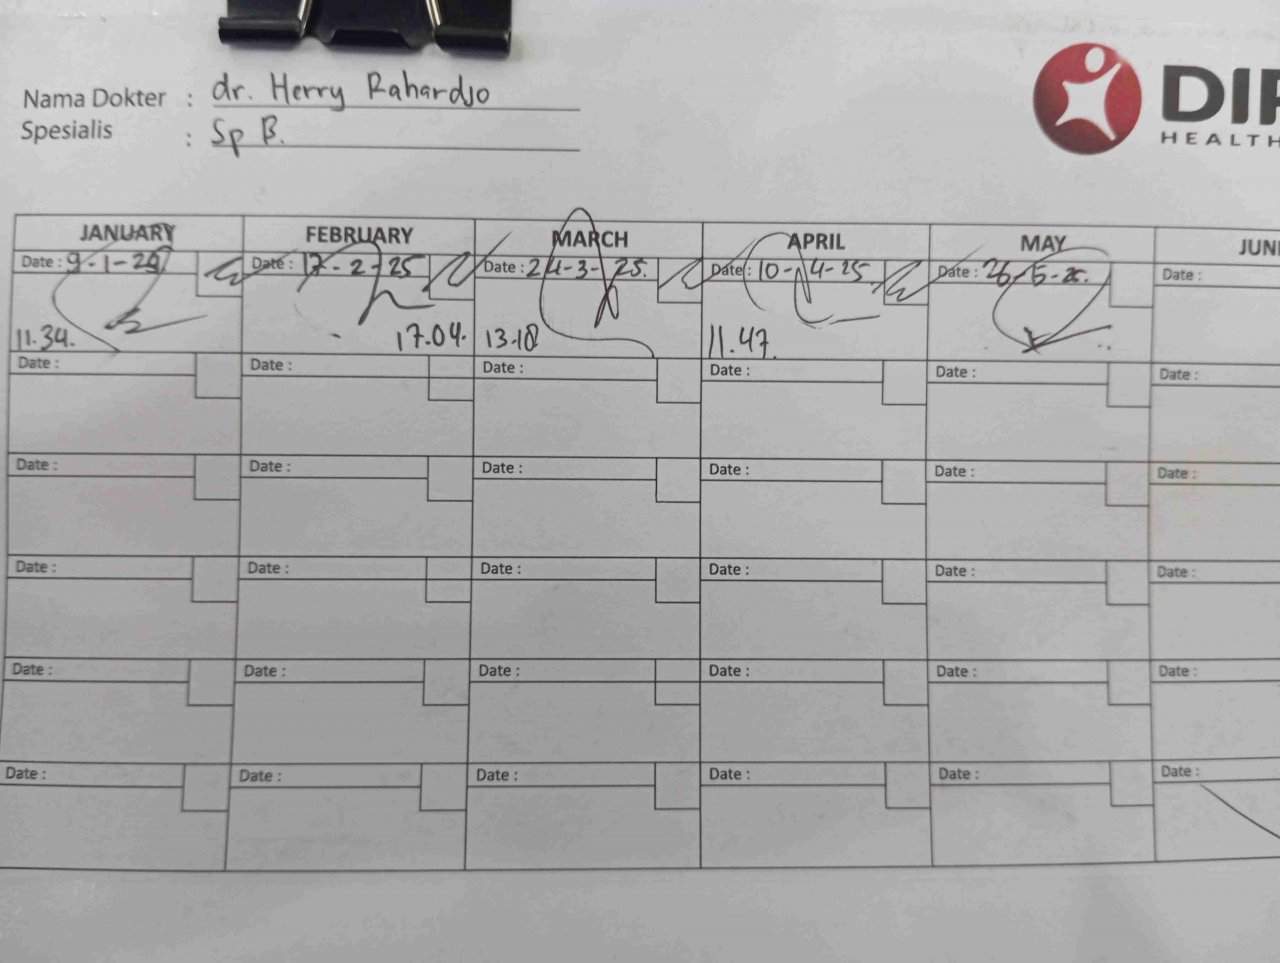 Nama Dokter : dr. Herry Rahardjo
Spesialis : Sp B.
DIF
HEALTH
JANUARY FEBRUARY MARCH APRIL MAY JUNI
Date : 9-1-25 Date : 17-2-25 Date : 24-3-25. Date : 10-4-25 Date : 26-5-25. Date :
11.34. 17.04. 13.18 11.47.
Date : Date : Date : Date : Date : Date :
Date : Date : Date : Date : Date : Date :
Date : Date : Date : Date : Date : Date :
Date : Date : Date : Date : Date : Date :
Date : Date : Date : Date : Date : Date :